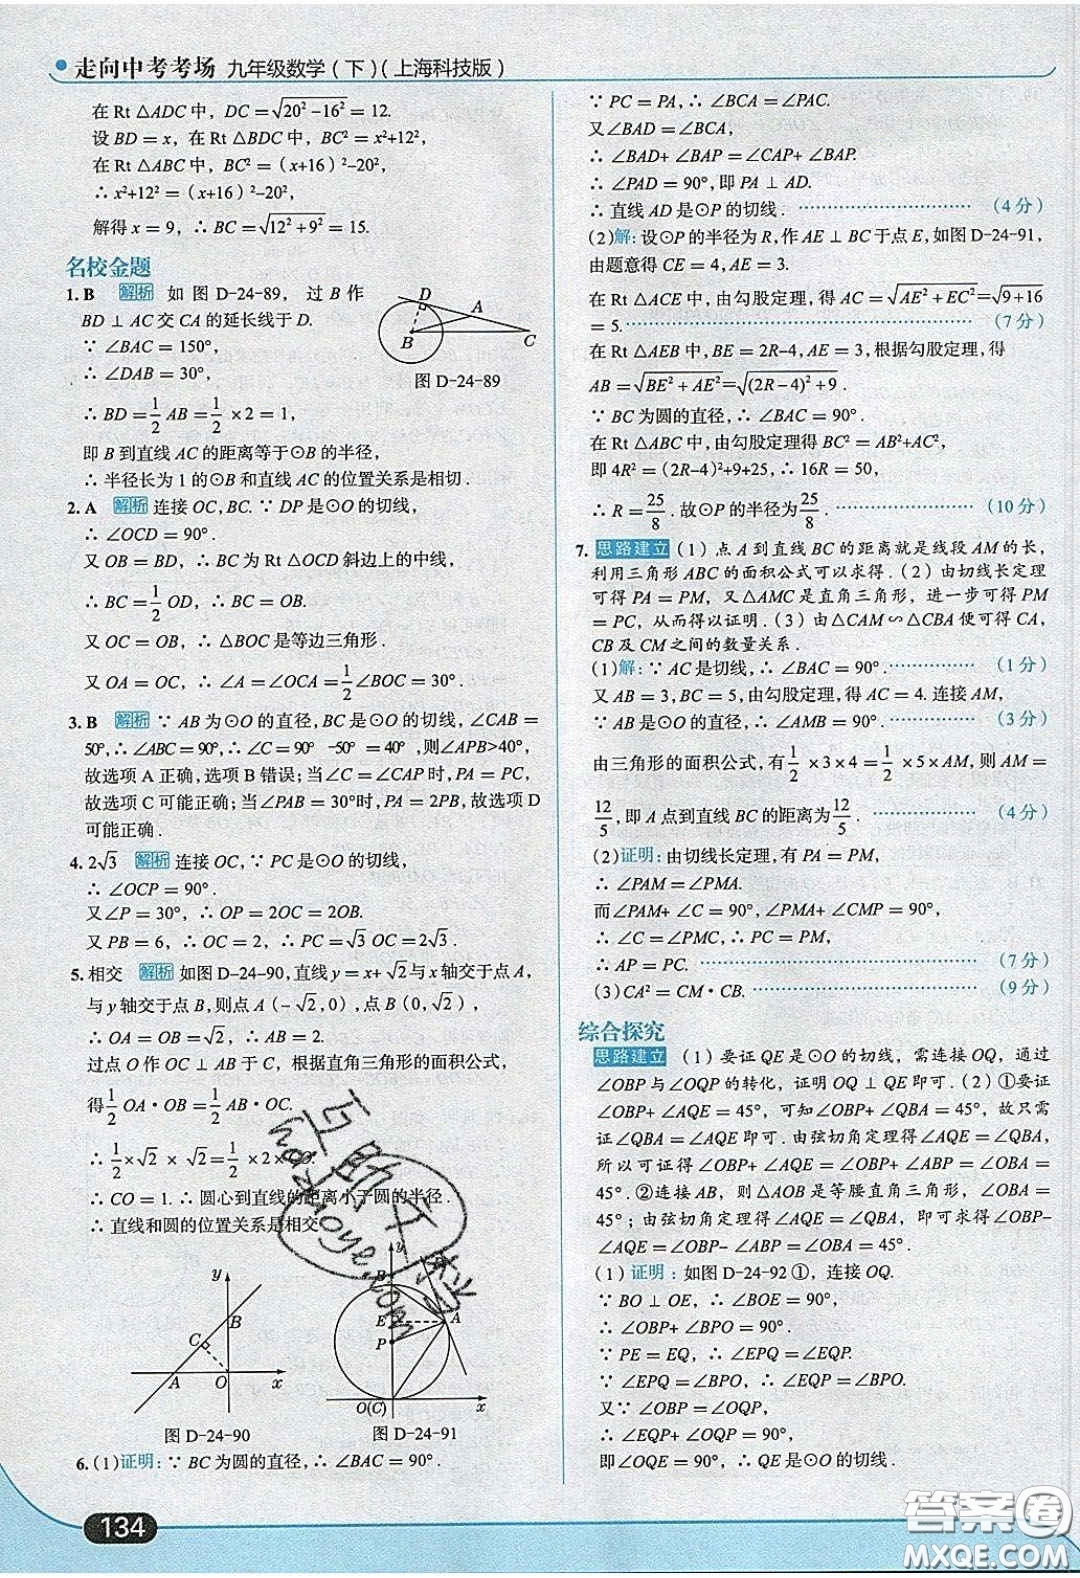 走向中考考场 九年级数学(下)(上海科技版)
在 Rt △ADC 中，DC =√(20²-16²)= 12.
设 BD = x，在 Rt △BDC 中，BC² = x²+12²，
在 Rt △ABC 中，BC² =（x+16）²-20²，
∴ x²+12² =（x+16）²-20²，
解得 x = 9，∴ BC =√(12²+9²)= 15.
名校金题
1. B 解析 如图 D-24-89，过 B 作
BD ⊥ AC 交 CA 的延长线于 D.
∵ ∠BAC = 150°，
∴ ∠DAB = 30°，
∴ BD = 1/2 AB = 1/2 ×2 = 1，
即 B 到直线 AC 的距离等于⊙B 的半径，
∴ 半径长为 1 的⊙B 和直线 AC 的位置关系是相切.
D
A
B
C
图 D-24-89
2. A 解析 连接 OC，BC. ∵ DP 是⊙O 的切线，
∴ ∠OCD = 90°.
又 OB = BD，∴ BC 为 Rt △OCD 斜边上的中线，
∴ BC = 1/2 OD，∴ BC = OB.
又 OC = OB，∴ △BOC 是等边三角形.
又 OA = OC，∴ ∠A = ∠OCA = 1/2 ∠BOC = 30°.
3. B 解析 ∵ AB 为⊙O 的直径，BC 是⊙O 的切线，∠CAB =
50°，∴ ∠ABC = 90°，∴ ∠C = 90° -50° = 40°，则∠APB>40°，
故选项 A 正确，选项 B 错误；当∠C = ∠CAP 时，PA = PC，
故选项 C 可能正确；当∠PAB = 30°时，PA = 2PB，故选项 D
可能正确.
4. 2√3 解析 连接 OC，∵ PC 是⊙O 的切线，
∴ ∠OCP = 90°.
又∠P = 30°，∴ OP = 2OC = 2OB.
又 PB = 6，∴ OC = 2，∴ PC =√3 OC = 2√3.
5. 相交 解析 如图 D-24-90，直线 y = x+√2 与 x 轴交于点 A，
与 y 轴交于点 B，则点 A（-√2，0），点 B（0，√2），
∴ OA = OB =√2，∴ AB = 2.
过点 O 作 OC ⊥ AB 于 C，根据直角三角形的面积公式，
得 1/2 OA·OB = 1/2 AB·OC.
∴ 1/2 ×√2 ×√2 = 1/2 ×2×
∴ CO = 1. ∴ 圆心到直线的距离小于圆的半径.
∴ 直线和圆的位置关系是相交
y
B
C
A
O
x
图 D-24-90
y
B
E
A
P
O(C)
x
图 D-24-91
6. (1)证明：∵ BC 为圆的直径，∴ ∠BAC = 90°.
∵ PC = PA，∴ ∠BCA = ∠PAC.
又∠BAD = ∠BCA，
∴ ∠BAD+ ∠BAP = ∠CAP+ ∠BAP.
∴ ∠PAD = 90°，即 PA ⊥ AD.
∴ 直线 AD 是⊙P 的切线. （4 分）
(2)解：设⊙P 的半径为 R，作 AE ⊥ BC 于点 E，如图 D-24-91，
由题意得 CE = 4，AE = 3.
在 Rt △ACE 中，由勾股定理，得 AC =√(AE²+EC²)=√(9+16)
= 5. （7 分）
在 Rt △AEB 中，BE = 2R-4，AE = 3，根据勾股定理，得
AB =√(BE²+AE²)=√((2R-4)²+9).
∵ BC 为圆的直径，∴ ∠BAC = 90°.
在 Rt △ABC 中，由勾股定理得 BC² = AB²+AC²，
即 4R² =（2R-4）²+9+25，∴ 16R = 50，
∴ R = 25/8. 故⊙P 的半径为 25/8. （10 分）
7. 思路建立 （1）点 A 到直线 BC 的距离就是线段 AM 的长，
利用三角形 ABC 的面积公式可以求得.（2）由切线长定理
可得 PA = PM，又△AMC 是直角三角形，进一步可得 PM
= PC，从而得以证明.（3）由△CAM ∽ △CBA 便可得 CA，
CB 及 CM 之间的数量关系.
(1)解：∵ AC 是切线，∴ ∠BAC = 90°. （1 分）
又 AB = 3，BC = 5，由勾股定理，得 AC = 4. 连接 AM，
∵ AB 是⊙O 的直径，∴ ∠AMB = 90°. （3 分）
由三角形的面积公式，有 1/2 ×3×4 = 1/2 ×5×AM，则 AM =
12/5，即 A 点到直线 BC 的距离为 12/5. （4 分）
(2)证明：由切线长定理，有 PA = PM，
∴ ∠PAM = ∠PMA.
而∠PAM+ ∠C = 90°，∠PMA+ ∠CMP = 90°，
∴ ∠C = ∠PMC，∴ PC = PM，
∴ AP = PC. （7 分）
(3)CA² = CM·CB. （9 分）
综合探究
思路建立 （1）要证 QE 是⊙O 的切线，需连接 OQ，通过
∠OBP 与∠OQP 的转化，证明 OQ ⊥ QE 即可.（2）①要证
∠OBP+ ∠AQE = 45°，可知∠OBP+ ∠ABP = 45°，故只需
证∠QBA = ∠AQE 即可. 由弦切角定理得∠AQE = ∠QBA，
所以可证得∠OBP+ ∠AQE = ∠OBP+ ∠ABP = ∠OBA =
45°. ②连接 AB，则△AOB 是等腰直角三角形，∠OBA =
45°；由弦切角定理得∠AQE = ∠QBA，即可求得∠OBP-
∠AQE = ∠OBP- ∠ABP = ∠OBA = 45°.
(1)证明：如图 D-24-92 ①，连接 OQ.
∵ BO ⊥ OE，∴ ∠BOE = 90°，
∴ ∠OBP+ ∠BPO = 90°.
∵ PE = EQ，∴ ∠EPQ = ∠EQP.
∵ ∠EPQ = ∠BPO，∴ ∠EQP = ∠BPO.
又∵ ∠OBP = ∠OQP，
∴ ∠EQP + ∠OQP = 90°，
即∠OQE = 90°，∴ QE 是⊙O 的切线.
134
答案圈
MXQE.COM